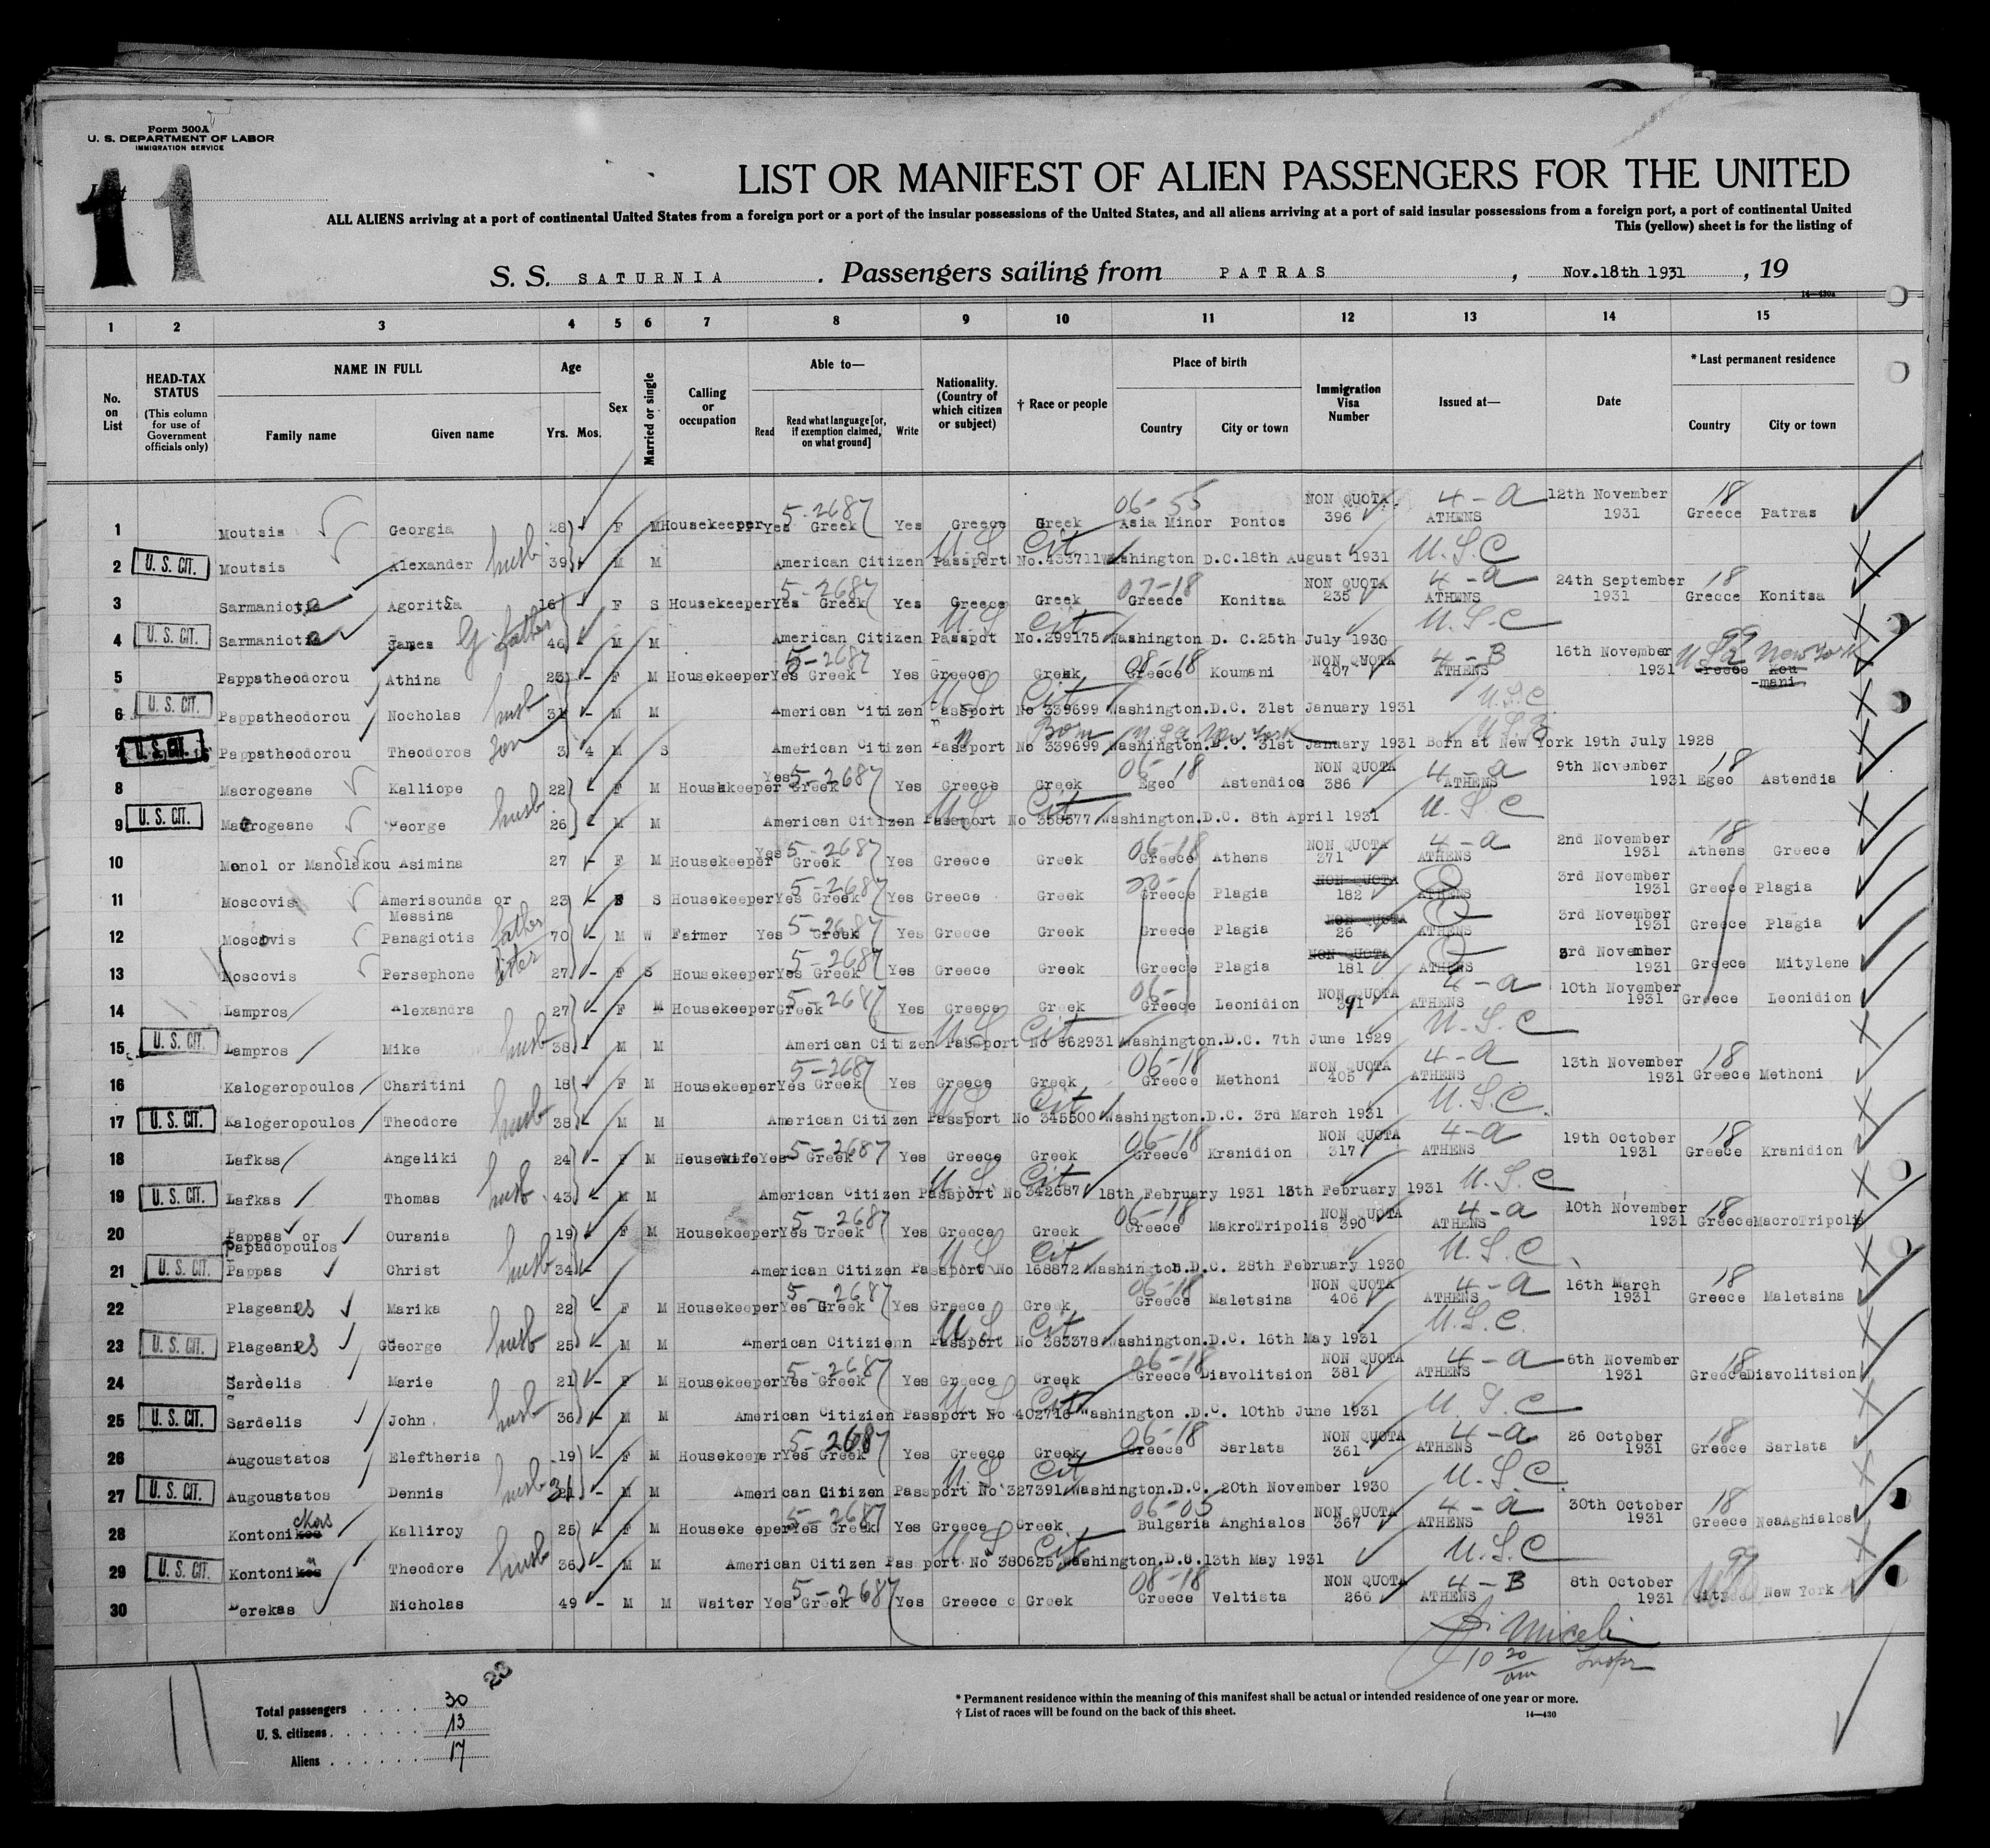 Form 500A
U. S. DEPARTMENT OF LABOR
IMMIGRATION SERVICE
11
LIST OR MANIFEST OF ALIEN PASSENGERS FOR THE UNITED
ALL ALIENS arriving at a port of continental United States from a foreign port or a port of the insular possessions of the United States, and all aliens arriving at a port of said insular possessions from a foreign port, a port of continental United
This (yellow) sheet is for the listing of
S. S. SATURNIA . Passengers sailing from PATRAS , Nov.18th 1931 , 19
14—430A
1 2 3 4 5 6 7 8 9 10 11 12 13 14 15
No. on List HEAD-TAX STATUS (This column for use of Government officials only) NAME IN FULL Family name Given name Age Yrs. Mos. Sex Married or single Calling or occupation Able to— Read Read what language [or, if exemption claimed, on what ground] Write Nationality. (Country of which citizen or subject) † Race or people Place of birth Country City or town Immigration Visa Number Issued at— Date * Last permanent residence Country City or town
5-2687 06-55 NON QUOTA 4-a 12th November 18
1 Moutsis Georgia 28 F M Housekeeper Yes Greek Yes Greece Greek Asia Minor Pontos 396 ATHENS 1931 Greece Patras
2 U. S. CIT. Moutsis Alexander husb 39 M M American Citizen Passport No.433711 Washington D.C.18th August 1931 U.S.C
5-2687 07-18 NON QUOTA 4-a 24th September 18
3 Agoritsa 16 F S Housekeeper Yes Greek Yes Greece Greek Greece Konitsa 235 ATHENS 1931 Greece Konitsa
4 U. S. CIT. James father 46 M M American Citizen Passpot No.299175 Washington D. C.25th July 1930 U.S.C
5-2687 08-18 NON QUOTA 4-B 16th November 99 USA New York
5 Pappatheodorou Athina 23 F M Housekeeper Yes Greek Yes Greece Greek Greece Koumani 407 ATHENS 1931 Greece Kou-mani
6 U. S. CIT. Pappatheodorou Nocholas husb 31 M M American Citizen Passport No 339699 Washington.D.C. 31st January 1931 U.S.C
7 U. S. CIT. Pappatheodorou Theodoros Son 3 4 M S American Citizen Passport No 339699 Washington.D.C. 31st January 1931 Born at New York 19th July 1928
5-2687 06-18 NON QUOTA 4-a 9th November 18
8 Macrogeane Kalliope 22 F M Househkeeper Yes Greek Yes Greece Greek Egeo Astendioe 386 ATHENS 1931 Egeo Astendia
9 U. S. CIT. Macrogeane George husb 26 M M American Citizen Passport No 358577 Washington.D.C. 8th April 1931 U.S.C
5-2687 06-18 NON QUOTA 4-a 2nd November 18
10 Monol or Manolakou Asimina 27 F M Housekeeper Yes Greek Yes Greece Greek Greece Athens 371 ATHENS 1931 Athens Greece
5-2687 NON QUOTA 3rd November
11 Moscovis Amerisounda or Messina 23 F S Housekeeper Yes Greek Yes Greece Greek Greece Plagia 182 ATHENS 1931 Greece Plagia
5-2687 NON QUOTA 3rd November
12 Moscovis Panagiotis father 70 M W Farmer Yes Greek Yes Greece Greek Greece Plagia 26 ATHENS 1931 Greece Plagia
5-2687 NON QUOTA 3rd November
13 Moscovis Persephone sister 27 F S Housekeeper Yes Greek Yes Greece Greek Greece Plagia 181 ATHENS 1931 Greece Mitylene
5-2687 06- NON QUOTA 4-a 10th November
14 Lampros Alexandra 27 F M Housekeeper Greek Yes Greece Greek Greece Leonidion 391 ATHENS 1931 Greece Leonidion
15 U. S. CIT. Lampros Mike husb 38 M M American Citizen Passport No 662931 Washington.D.C. 7th June 1929 U.S.C
5-2687 06-18 NON QUOTA 4-a 13th November 18
16 Kalogeropoulos Charitini 18 F M Housekeeper Yes Greek Yes Greece Greek Greece Methoni 405 ATHENS 1931 Greece Methoni
17 U. S. CIT. Kalogeropoulos Theodore husb 38 M M American Citizen Passport No 345500 Washington.D.C. 3rd March 1931 U.S.C.
5-2687 06-18 NON QUOTA 4-a 19th October 18
18 Lafkas Angeliki 24 F M Housewife Yes Greek Yes Greece Greek Greece Kranidion 317 ATHENS 1931 Greece Kranidion
19 U. S. CIT. Lafkas Thomas husb 43 M M American Citizen Passport No 342687 18th February 1931 13th February 1931 U.S.C
5-2687 06-18 NON QUOTA 4-a 10th November 18
20 Pappas or Papadopoulos Ourania 19 F M Housekeeper Yes Greek Yes Greece Greek Greece MakroTripolis 390 ATHENS 1931 Greece MacroTripolis
21 U. S. CIT. Pappas Christ husb 34 American Citizen Passport No 168872 Washington.D.C. 28th February 1930 U.S.C
5-2687 06-18 NON QUOTA 4-a 16th March 18
22 Plageanes Marika 22 F M Housekeeper Yes Greek Yes Greece Greek Greece Maletsina 406 ATHENS 1931 Greece Maletsina
23 U. S. CIT. Plageanes GGeorge husb 25 M M American Citizienn Passport No 383378 Washington.D.C. 16th May 1931 U.S.C.
5-2687 06-18 NON QUOTA 4-a 6th November 18
24 Sardelis Marie 21 F M Housekeeper Yes Greek Yes Greece Greek Greece Diavolitsion 381 ATHENS 1931 Greece Diavolitsion
25 U. S. CIT. Sardelis John husb 36 M M American Citizien Passport No 402716 Washington .D.C. 10thb June 1931 U.S.C
5-2687 06-18 NON QUOTA 4-a 26 October 18
26 Augoustatos Eleftheria 19 F M Housekeeper Yes Greek Yes Greece Greek Greece Sarlata 361 ATHENS 1931 Greece Sarlata
27 U. S. CIT. Augoustatos Dennis husb 31 M M American Citizen Passport No 327391 Washington.D.C. 20th November 1930 U.S.C.
5-2687 06-05 NON QUOTA 4-a 30th October 18
28 Kalliroy 25 F M Housekeeper Yes Greek Yes Greece Greek Bulgaria Anghialos 367 ATHENS 1931 Greece NeaAghialos
29 U. S. CIT. Theodore husb 36 M M American Citizen Passport No 380625 Washington.D.C.13th May 1931 U.S.C
5-2687 08-18 NON QUOTA 4-B 8th October 99
30 Derekas Nicholas 49 M M Waiter Yes Greek Yes Greece Greek Greece Veltista 266 ATHENS 1931 City New York
10 20 am Inspr
23
Total passengers 30
U. S. citizens 13
Aliens 17
* Permanent residence within the meaning of this manifest shall be actual or intended residence of one year or more.
† List of races will be found on the back of this sheet.
14—430